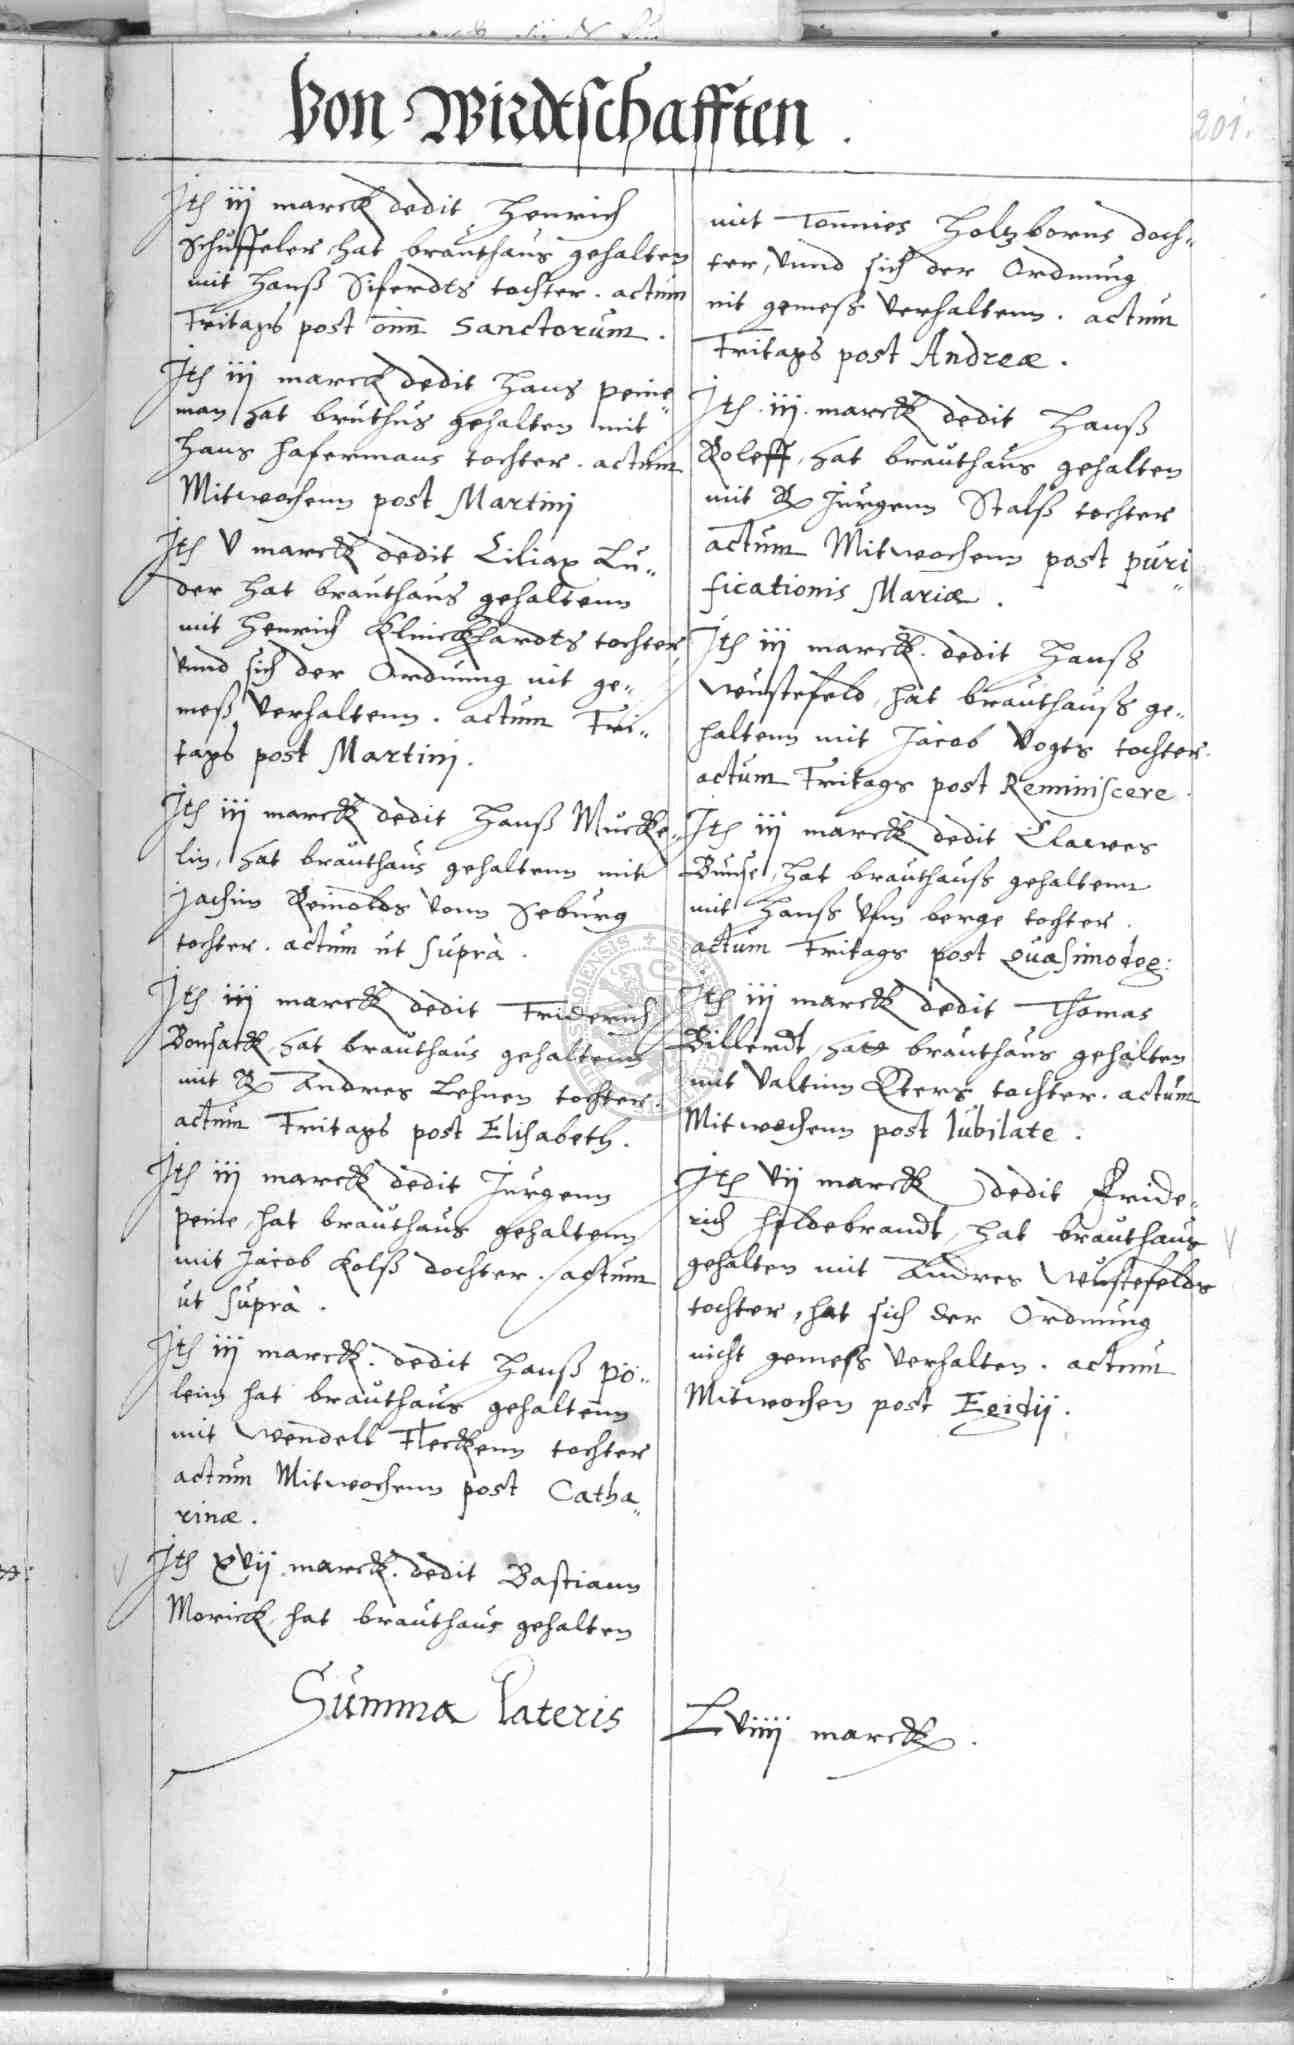 Von Wirdtschafften.
201.
Jtē iij marck dedit Henrich
Schuffeler hat brauthaus gehalten
mit Hanß Siferdts tochter. actum
Fritags post oīm Sanctorum.
Jtē iij marck dedit Hans peine„
man hat bruthus gehalten mit
Hans Hafermans tochter. actum
Mitwochenn post Martinj
Jtē V marck dedit Liliax Lu„
der hat brauthaus gehaltenn
mit Henrich Klinckhardts tochter,
vnnd sich der Ordnung nit ge„
meß verhaltenn. actum Fri„
tags post Martinj.
Jtē iij marck dedit Hanß Mucke„
lin, hat brauthaus gehaltenn mit
Jachim Reinolds vonn Seburg
tochter. actum ut suprà.
Jtē iij marck dedit Friderich
Bonsack, hat brauthaus gehaltenn
mit Andres Lehnen tochter.
actum Fritags post Elisabeth.
Jtē iij marck dedit Jurgenn
peine, hat brauthaus gehaltenn
mit Jacob Kolß dochter. actum
ut suprà.
Jtē iij marck. dedit Hanß po„
lein hat brauthaus gehaltenn
mit Wendell Fleckenn tochter
actum Mitwochenn post Catha„
rinæ.
Jtē xvij marck. dedit Bastiann
Morick, hat brauthaus gehalten
mit Tonnies Holtzborns doch„
ter, vnnd sich der Ordnung
nit gemeß verhaltenn. actum
Fritags post Andreæ.
Jtē. iij. marck dedit Hanß
Roleff, hat brauthaus gehalten
mit Jurgenn Stalß tochter
actum Mitwochenn post puri„
ficationis Mariæ.
Jtē iij marck. dedit Hanß
Wustefeld, hat brauthauß ge„
haltenn mit Jacob Vogts tochter.
actum Fritags post Reminiscere.
Jtē iij marck dedit Clawes
Bunse, hat brauthauß gehaltenn
mit Hanß vfm berge tochter.
actum Fritags post quasimodog:
Jtē iij marck dedit Thomas
Billerdt, hat brauthaus gehalten
mit Valtinn Eters tochter. actum
Mitwochenn post Jubilate.
Jtē vij marck dedit Fride„
rich Hildebrandt, hat brauthaus
gehalten mit Andres Wustefelds
tochter, hat sich der Ordnung
nicht gemeß verhalten. actum
Mitwochen post Egidij.
Summa lateris Lviiij marck.